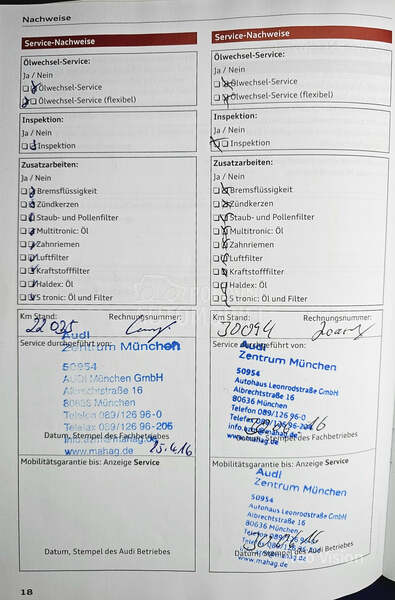 Nachweise
Service-Nachweise
Ölwechsel-Service:
Ja / Nein
Ölwechsel-Service
Ölwechsel-Service (flexibel)
Inspektion:
Ja / Nein
Inspektion
Zusatzarbeiten:
Ja / Nein
Bremsflüssigkeit
Zündkerzen
Staub- und Pollenfilter
Multitronic: Öl
Zahnriemen
Luftfilter
Kraftstofffilter
Haldex: Öl
S tronic: Öl und Filter
Km Stand: Rechnungsnummer:
22 025
Service durchgeführt von:
Audi
Zentrum München
50954
AUDI München GmbH
Albrechtstraße 16
80636 München
Telefon 089/126 96-0
Telefax 089/126 96-206
Datum, Stempel des Fachbetriebes
www.mahag.de
25.4.16
Mobilitätsgarantie bis: Anzeige Service
Datum, Stempel des Audi Betriebes
18
Service-Nachweise
Ölwechsel-Service:
Ja / Nein
Ölwechsel-Service
Ölwechsel-Service (flexibel)
Inspektion:
Ja / Nein
Inspektion
Zusatzarbeiten:
Ja / Nein
Bremsflüssigkeit
Zündkerzen
Staub- und Pollenfilter
Multitronic: Öl
Zahnriemen
Luftfilter
Kraftstofffilter
Haldex: Öl
S tronic: Öl und Filter
Km Stand: Rechnungsnummer:
30094
Service durchgeführt von:
Audi
Zentrum München
50954
Autohaus Leonrodstraße GmbH
Albrechtstraße 16
80636 München
Telefon 089/126 96-0
www.mahag.de
Datum, Stempel des Fachbetriebes
Mobilitätsgarantie bis: Anzeige Service
Audi
Zentrum München
50954
Autohaus Leonrodstraße GmbH
Albrechtstraße 16
80636 München
Telefon 089/126 96-0
Datum, Stempel des Audi Betriebes
www.mahag.de